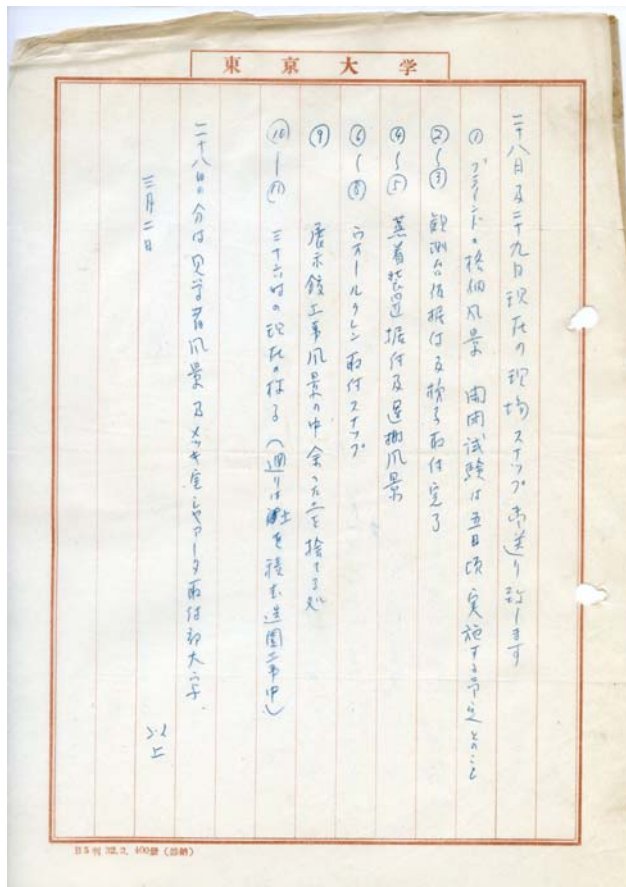 東京大学
二十八日及二十九日現在の現場スナップ御送り致します
① ブラインドの格納風景 開閉試験は五日頃実施する予定とのこと
②〜③ 観測台仮据付及梯子取付完了
④〜⑤ 蒸着装置据付及運搬風景
⑥〜⑧ ウオールクレン取付スナップ
⑨ 展示館工事風景の中余った土を捨てる処
⑩〜⑪ 三十六吋の現在の様子(週りは土を積み造園工事中)
二十八日の分は見学者風景及メッキ室シヤアータ取付部大写
以上
三月二日
B5判 32.2. 400冊